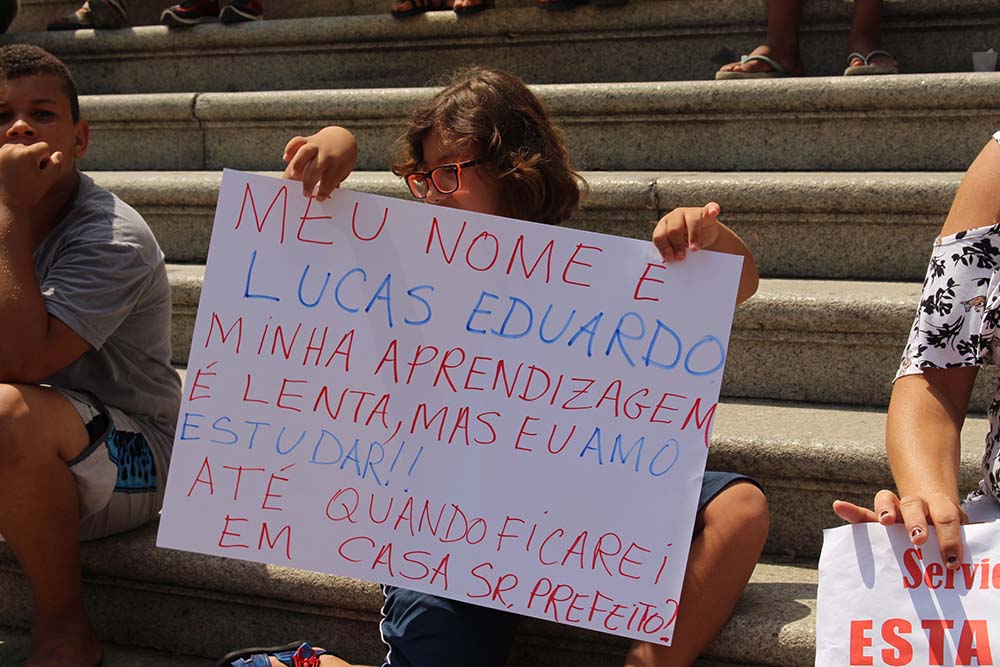 MEU NOME É
LUCAS EDUARDO.
MINHA APRENDIZAGEM
É LENTA, MAS EU AMO
ESTUDAR!!
ATÉ QUANDO FICAREI
EM CASA SR. PREFEITO?
Servi
ESTA